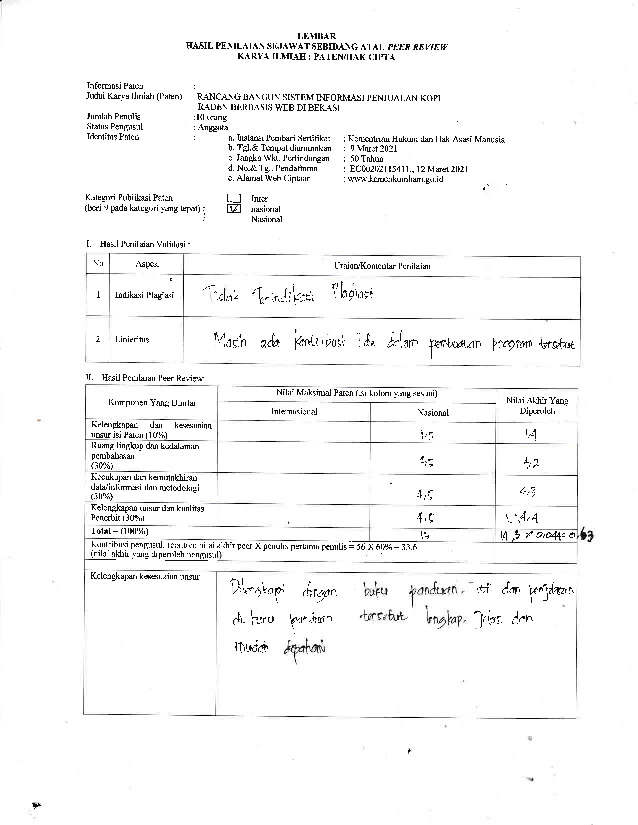 LEMBAR
HASIL PENILAIAN SEJAWAT SEBIDANG ATAU PEER REVIEW
KARYA ILMIAH : PATEN/HAK CIPTA
Informasi Paten :
Judul Karya Ilmiah (Paten) RANCANG BANGUN SISTEM INFORMASI PENJUALAN KOPI
RADEN BERBASIS WEB DI BEKASI
Jumlah Penulis : orang
Status Pengusul : Anggota
Identitas Paten : a. Instansi Pemberi Sertifikat : Kementrian Hukum dan Hak Asasi Manusia
b. Tgl.& Tempat diumumkan : 9 Maret 2021
c. Jangka Wkt. Perlindungan : 50 Tahun
d. No.& Tgl. Pendaftaran : EC00202115411, 12 Maret 2021
e. Alamat Web Ciptaan : www.kemenkumham.go.id
Kategori Publikasi Paten Inter
(beri √ pada kategori yang tepat) : nasional
Nasional
I. Hasil Penilaian Validasi :
No Aspek Uraian/Komentar Penilaian
1 Indikasi Plagiasi Tidak Terindikasi Plagiasi
2 Linieritas Masih ada kontribusi Ide dalam pembuatan program tersebut
II. Hasil Penilaian Peer Review
Komponen Yang Dinilai Nilai Maksimal Paten (isi kolom yang sesuai) Nilai Akhir Yang Diperoleh
Internasional Nasional
Kelengkapan dan kesesuaian unsur isi Paten (10%) 1,5 1,4
Ruang lingkup dan kedalaman pembahasan (30%) 4,5 4,2
Kecukupan dan kemutakhiran data/informasi dan metodologi (30%) 4,5 4,3
Kelengkapan unsur dan kualitas Penerbit (30%) 4,5 4,4
Total = (100%) 15 14,3 x
Kontribusi pengusul, nilai akhir peer X penulis pertama penulis = 56 X 60% = 33,6
(nilai akhir yang diperoleh pengusul)
Kelengkapan kesesuaian unsur Dilengkapi dengan buku panduan, isi dan penjelasan
di buku panduan tersebut lengkap, jelas dan
mudah dipahami